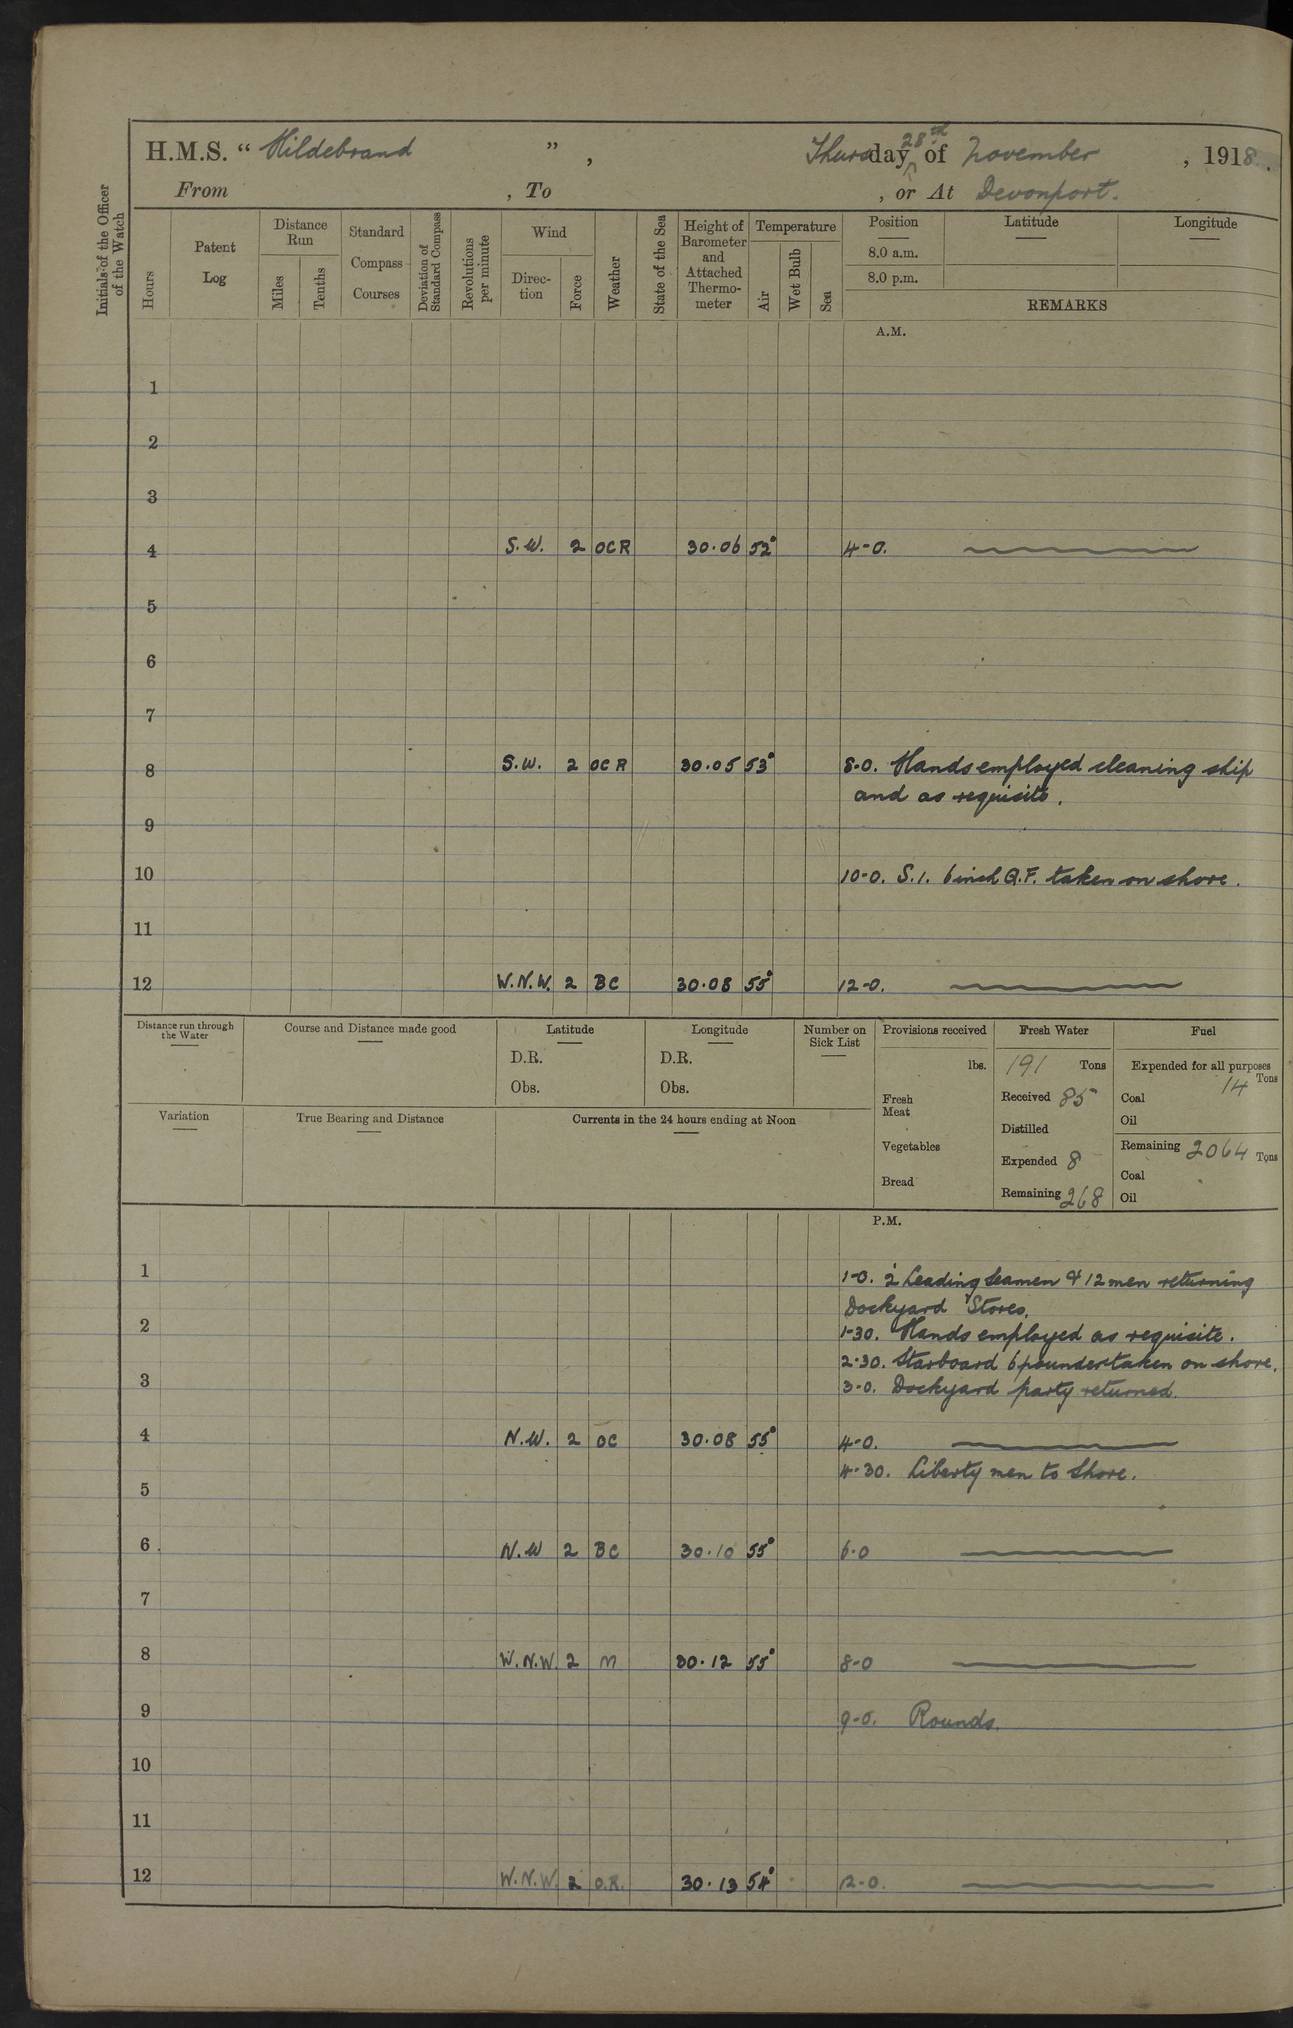 H.M.S. “ Hildebrand ” , Thursday 28th of November , 1918.
From , To , or At Devonport.
Initials of the Officer of the Watch
Hours
Patent Log
Distance Run
Miles
Tenths
Standard Compass Courses
Deviation of Standard Compass
Revolutions per minute
Wind
Direc-tion
Force
Weather
State of the Sea
Height of Barometer and Attached Thermo-meter
Temperature
Air
Wet Bulb
Sea
Position Latitude Longitude
8.0 a.m.
8.0 p.m.
REMARKS
A.M.
1
2
3
4 S.W. 2 OCR 30.06 52° 4-0.
5
6
7
8 S.W. 2 OCR 30.05 53° 8-0. Hands employed cleaning ship
and as requisite.
9
10 10-0. S.1. 6 inch Q.F. taken on shore.
11
12 W.N.W. 2 BC 30.08 55° 12-0.
Distance run through the Water
Course and Distance made good
Latitude
D.R.
Obs.
Longitude
D.R.
Obs.
Number on Sick List
Variation
True Bearing and Distance
Currents in the 24 hours ending at Noon
Provisions received
lbs.
Fresh Meat
Vegetables
Bread
Fresh Water
191 Tons
Received 85
Distilled
Expended 8
Remaining 268
Fuel
Expended for all purposes
14 Tons
Coal
Oil
Remaining 2064 Tons
Coal
Oil
P.M.
1 1-0. 2 Leading Seamen & 12 men returning
Dockyard Stores.
2 1-30. Hands employed as requisite.
2-30. Starboard 6 pounder taken on shore.
3 3-0. Dockyard party returned.
4 N.W. 2 OC 30.08 55° 4-0.
4-30. Liberty men to Shore.
5
6 N.W 2 BC 30.10 55° 6-0
7
8 W.N.W. 2 M 30.12 55° 8-0
9 9-0. Rounds.
10
11
12 W.N.W. 2 O.R. 30.13 54° 12-0.